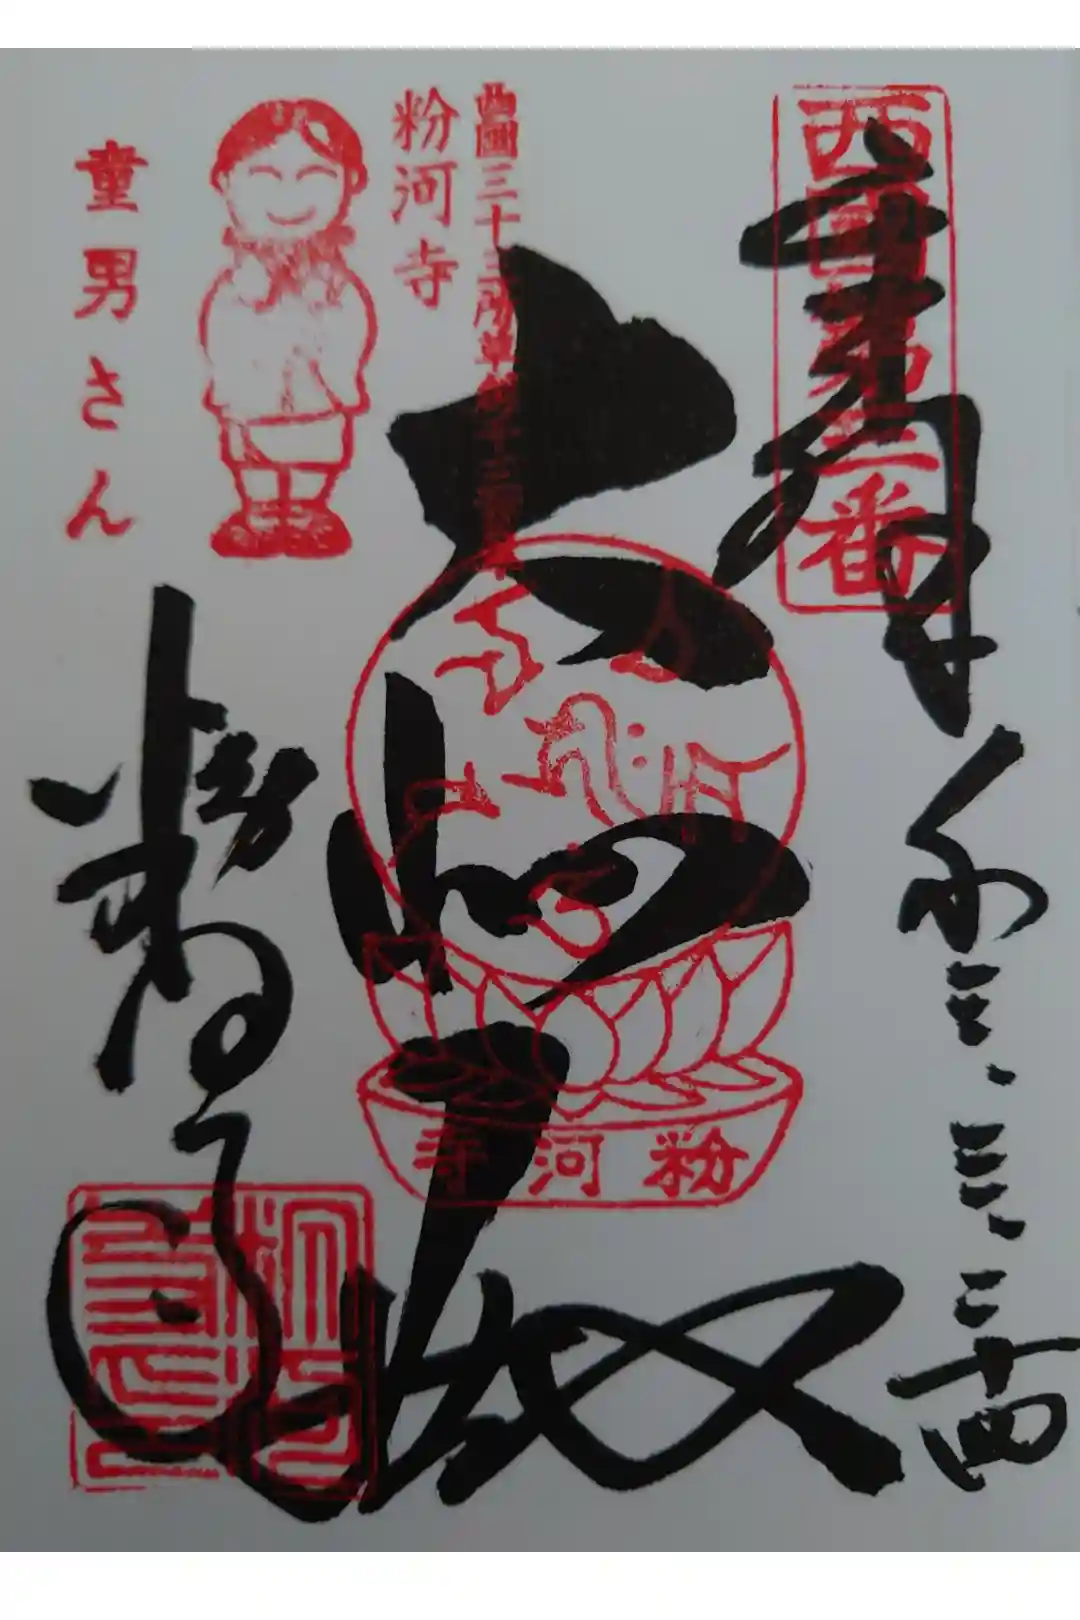 西国第三番
奉拝
三、三、二十四
西國三十三所草創千三百年
粉河寺
大悲殿
粉河寺
童男さん
粉河寺